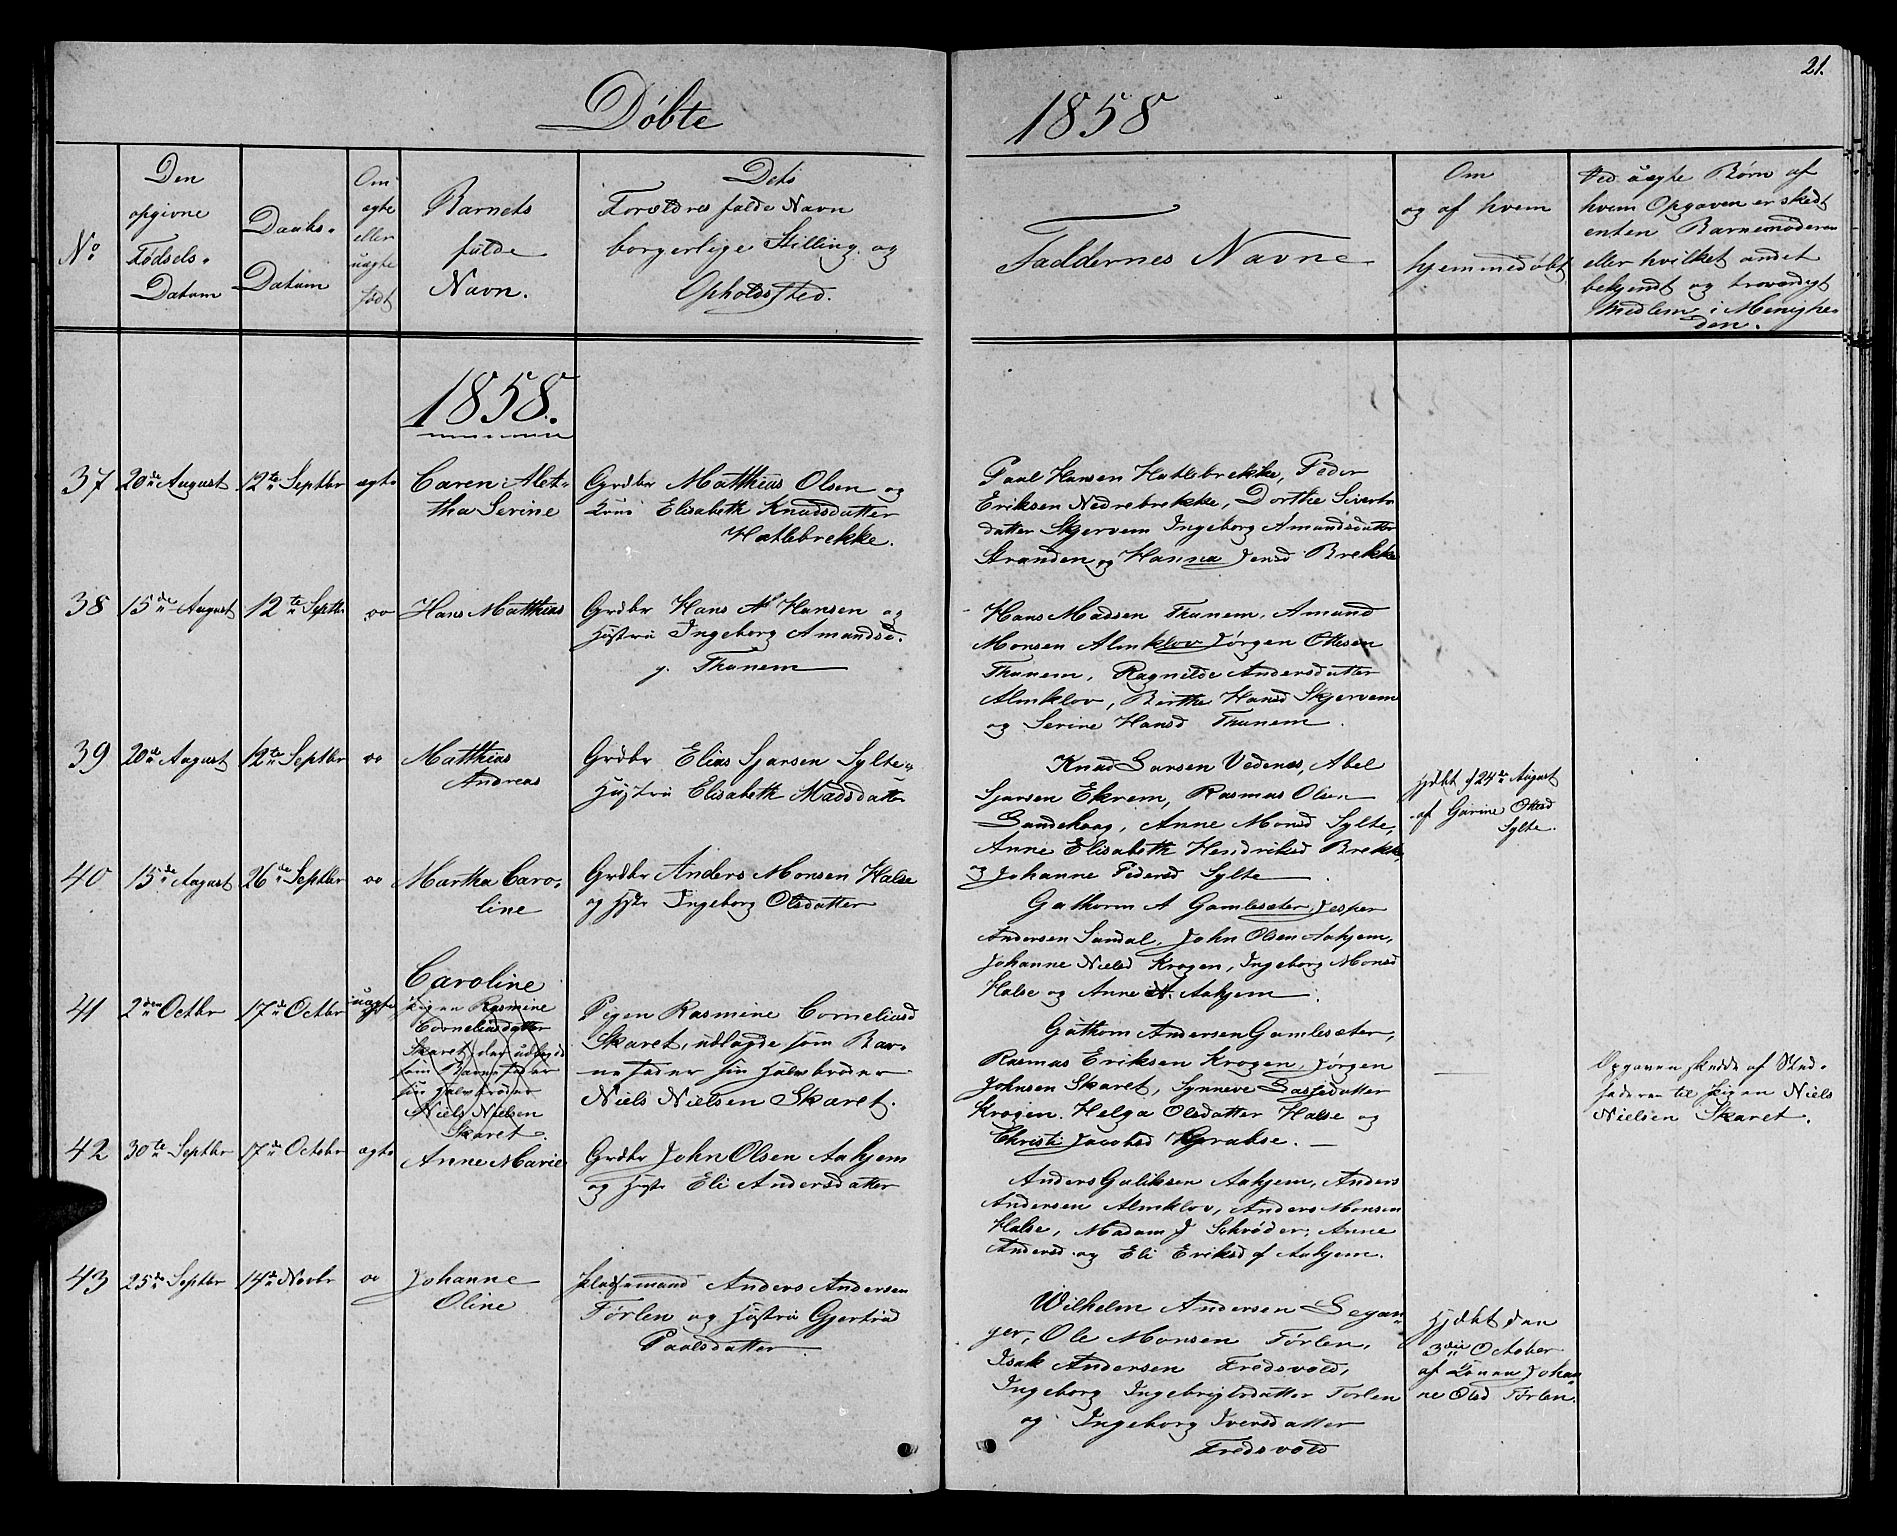 21.
Døbte
1858
No
Den
opgivne
Fødsels-
Datum
Daabs-
Datum
Om
ægte
eller
uægte
født
Barnets
fulde
Navn.
Dets
Forældres fulde Navn
borgerlige Stilling og
Opholdssted.
Faddernes Navne
Om
og af hvem
hjemmedøbt
Ved uægte Børn af
hvem Opgaven er skedt
enten Barnemoderen
eller hvilket andet
bekjendt og troværdigt
Medlem i Menighe-
den.
1858.
37
20de August
12te Septbr
ægte
Caren Alet-
tha Serine
Grdbr Matthias Olsen og
Kone Elisabeth Knudsdatter
Hatlebrekke.
Paul Hansen Hatlebrekke, Peder
Eriksen Nedrebrekke, Dorthe Siverts
datter Skjervem Ingeborg Amundsdatter
Stranden og Hanna Jensd Brekke
38
15de August
12te Septbr
oo
Hans Matthias
Grdbr Hans M Hansen og
Hustru Ingeborg Amundsd.
g. Thunem
Hans Madsen Thunem, Amund
Monsen Almklov Jørgen Ottesen
Thunem, Ragnilde Andersdatter
Almklov, Birthe Hansd Skjervem
og Serine Hansd Thunem.
39
20de August
12te Septbr
oo
Matthias
Andreas
Grdbr Elias Sjursen Sylte
Hustru Elisabeth Madsdatter
Knud Larsen Vedenes, Abel
Sjursen Ekrem, Rasmus Olsen
Sandehoog, Anne Monsd Sylte,
Anne Elisabeth Hendriksd Brekke
og Johanne Pedersd Sylte.
Hjdøbt d 24de August
af Gurine Ottesd
Sylte.
40
15de August
26de Septbr
oo
Martha Caro-
line
Grdbr Anders Monsen Halse
og Hstr Ingeborg Olsdatter
Guthorm A Gamlesæter, Jesper
Andersen Sundal, John Olsen Aahjem,
Johanne Nielsd Krogen, Ingeborg Monsd
Halse og Anne A. Aahjem.
41
2den Octbr
17de Octbr
uægte
Caroline
Pigen Rasmine
Corneliusdatter
Skaret, der udlagde
som Barnefader
sin Halvbroder
Niels Nielsen
Skaret.
Pigen Rasmine Corneliusd
Skaret, udlagde som Bar-
nefader sin Halvbroder
Niels Nielsen Skaret.
Guthorm Andersen Gamlesæter,
Rasmus Eriksen Krogen, Jørgen
Johnsen Skaret, Synneve Lassedatter
Krogen. Helga Olsdatter Halse og
Christi Jacobsd Grabse.
Opgaven skedde af Sted-
faderen til Pigen Niels
Nielsen Skaret.
42
30te Septbr
17de October
ægte
Anne Marie
Grdbr John Olsen Aahjem
og Hustr Eli Andersdatter
Anders Guliksen Aahjem, Anders
Andersen Almklov, Anders Monsen
Halse, Madam J Schrøder, Anne
Andersd og Eli Eriksd af Aahjem.
43
25de Septbr
14de Novbr
oo
Johanne
Oline
Pladsemand Anders Andersen
Førlen og Hustru Gjertrud
Paulsdatter
Wilhelm Andersen Legan-
ger, Ole Monsen Førlen,
Isak Andersen Fredsvold,
Ingeborg Ingebrigtsdatter Førlen
og Ingeborg Iversdatter
Fredsvold
Hjdøbt den
3die October
af Konen Johan-
ne Olsd Førlen.